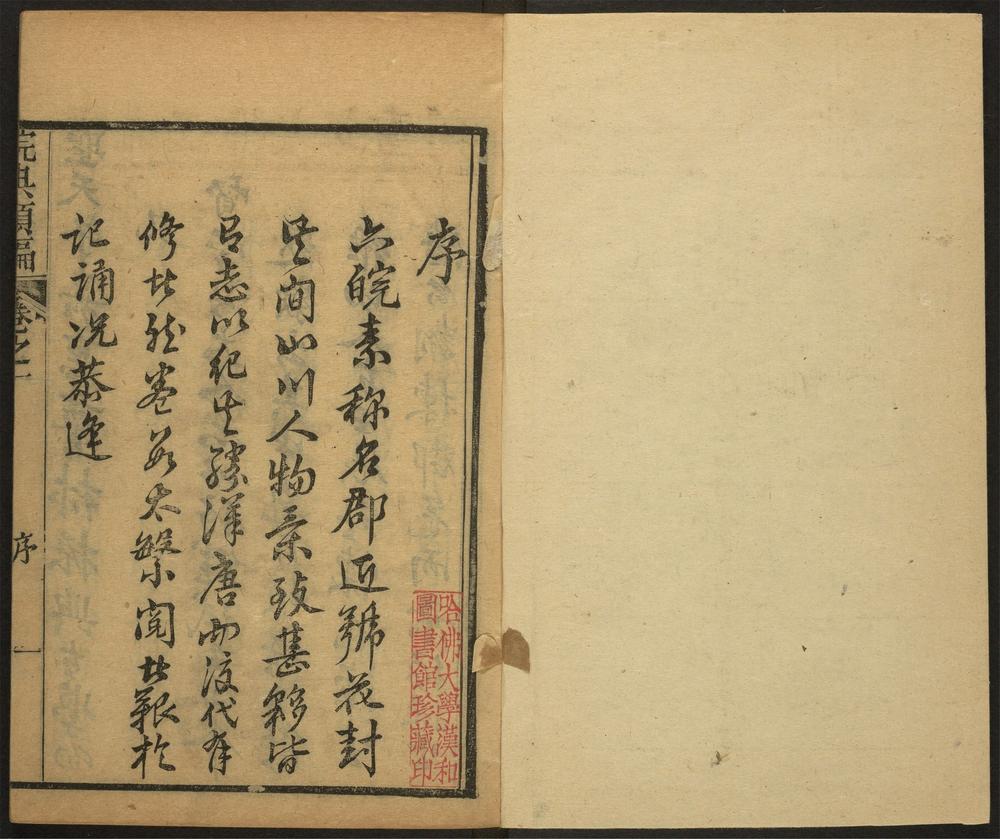 序
六皖素称名郡近號花封
其間山川人物景致甚夥皆
有志以紀其勝漢唐而後代有
修者然卷数太繁閲者艱於
記誦况恭逢
皖典類編 卷之一 序 一
哈佛大學漢和
圖書館珍藏印